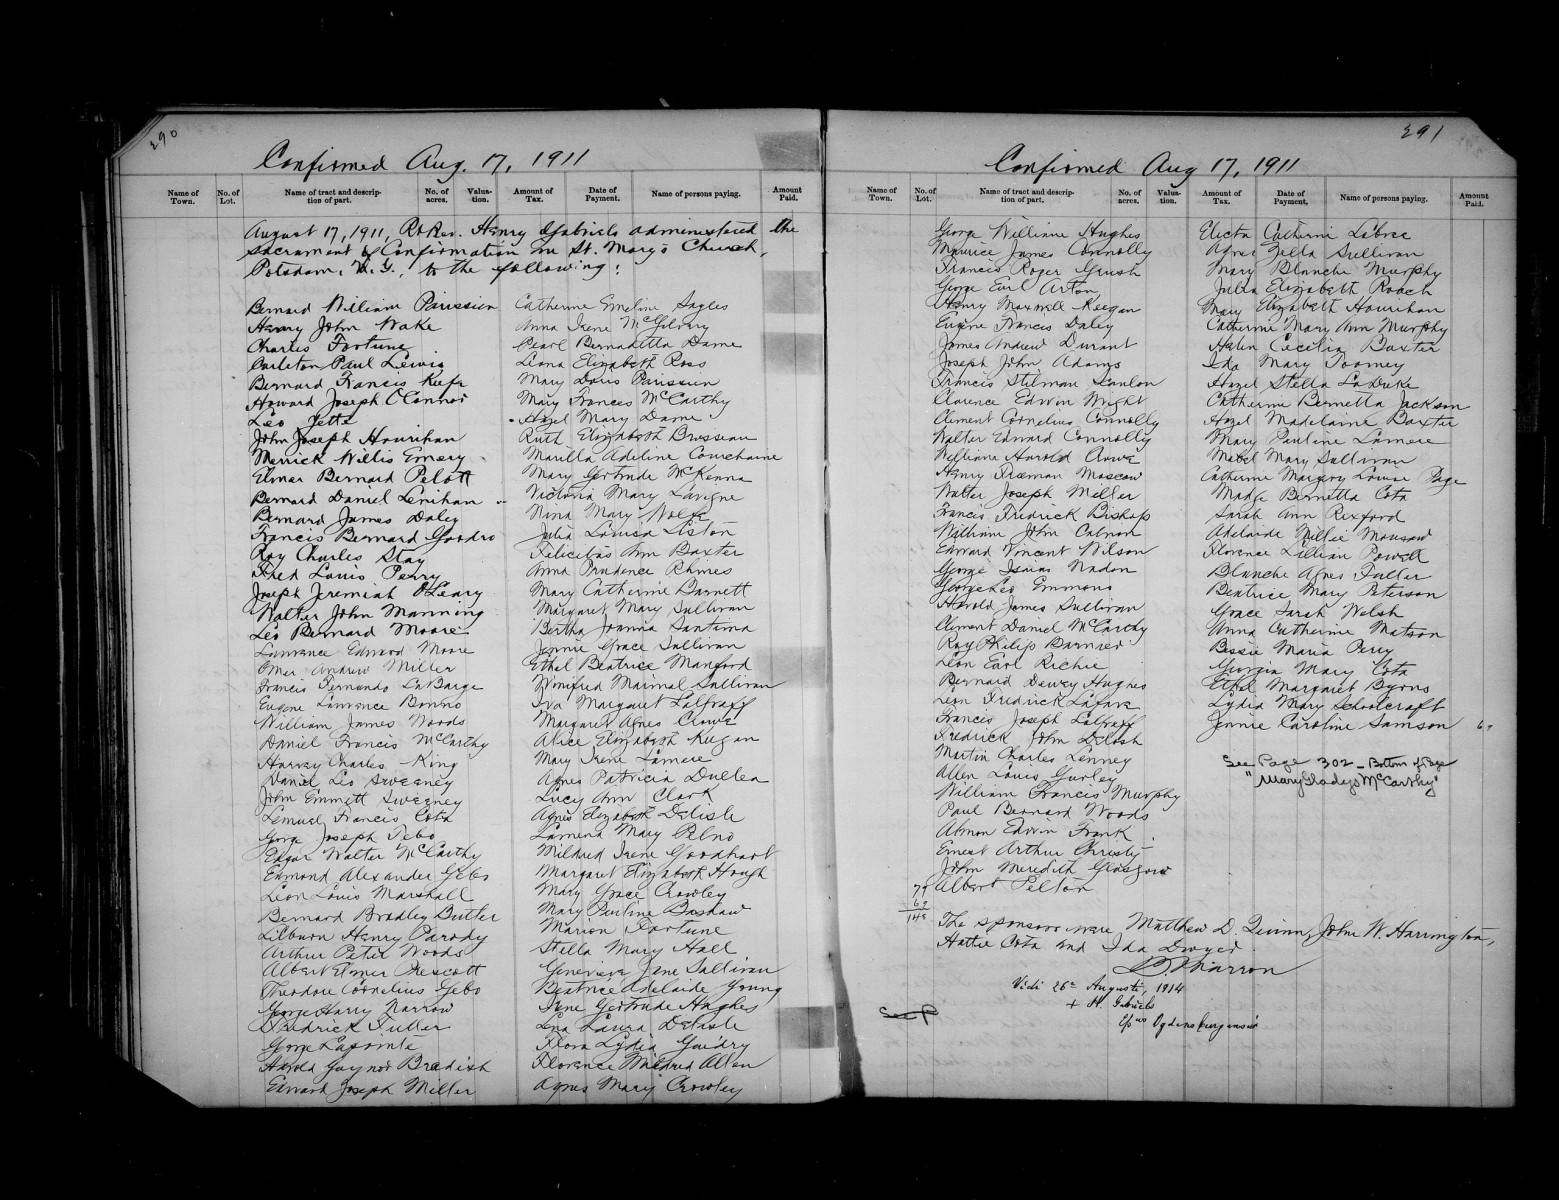 290
Confirmed Aug. 17, 1911
Name of Town. No. of Lot. Name of tract and descrip- tion of part. No. of acres. Valua- tion. Amount of Tax. Date of Payment. Name of persons paying. Amount Paid.
August 17, 1911, Rt. Rev. Henry Gabriels administered the
sacrament of Confirmation in St. Mary's Church,
Potsdam, N.Y., to the following:
Bernard William Parissien
Henry John Wake
Charles Fortune
Carleton Paul Lewis
Bernard Francis Keefe
Howard Joseph O'Connor
Leo Jette
John Joseph Hourihan
Merrick Willis Emery
Elmer Bernard Pelott
Bernard Daniel Lenihan
Bernard James Daley
Francis Bernard Goodro
Roy Charles Stay
Fred Louis Perry
Joseph Jeremiah O'Leary
Walter John Manning
Leo Bernard Moore
Lawrence Edward Moore
Omer Andrew Miller
Francis Fernando LaBarge
Eugene Lawrence Bonno
William James Woods
Daniel Francis McCarthy
Harvey Charles King
Daniel Leo Sweeney
John Emmett Sweeney
Lemuel Francis Cota
George Joseph Tebo
Edgar Walter McCarthy
Edmond Alexander Gebo
Leon Louis Marshall
Bernard Bradley Butler
Lilburn Henry Parody
Arthur Peter Woods
Albert Elmer Prescott
Theodore Cornelius Gebo
George Harry Narrow
Fredrick Fuller
George Lafointe
Harold Gaynor Bradish
Edward Joseph Miller
Catherine Emeline Sayles
Anna Irene McGilvary
Pearl Bernadetta Dame
Leona Elizabeth Ross
Mary Doris Parissien
Mary Frances McCarthy
Hazel Mary Dame
Ruth Elizabeth Brosseau
Marilla Adeline Courchaine
Mary Gertrude McKenna
Victoria Mary Lavigne
Nina Mary Wolfe
Julia Louisa Liston
Felicitas Ann Baxter
Anna Prudence Rhimes
Mary Catherine Barnett
Margaret Mary Sullivan
Bertha Joanna Santima
Jennie Grace Sullivan
Ethel Beatrice Manford
Winifred Maimal Sullivan
Iva Margaret Lalfraff
Margaret Agnes Crowe
Alice Elizabeth Keegan
Mary Irene Lamere
Agnes Patricia Dullea
Lucy Ann Clark
Agnes Elizabeth Delisle
Lamena Mary Pelno
Mildred Irene Goodhart
Margaret Elizabeth Hough
Mary Grace Crowley
Mary Pauline Bashaw
Marion Fortune
Stella Mary Hall
Genevieve Jane Sullivan
Beatrice Adelaide Young
Irene Gertrude Hughes
Lena Laura Delisle
Flora Lydia Guidry
Florence Mildred Allen
Agnes Mary Crowley
291
Confirmed Aug 17, 1911
Name of Town. No. of Lot. Name of tract and descrip- tion of part. No. of acres. Valua- tion. Amount of Tax. Date of Payment. Name of persons paying. Amount Paid.
George William Hughes
Maurice James Connolly
Francis Roger Grush
George Earl Arton
Henry Maxwell Keegan
Eugene Francis Daley
James Andrew Durant
Joseph John Adams
Francis Stilman Scanlon
Clarence Edwin Wright
Clement Cornelius Connolly
Walter Edward Connolly
William Harold Crowe
Henry Freeman Moscow
Walter Joseph Miller
Francis Fredrick Bishop
William John Calnon
Edward Vincent Wilson
George Isaias Nadon
George Leo Emmons
Harold James Sullivan
Clement Daniel McCarthy
Ray Philip Barnier
Leon Earl Richie
Bernard Dewey Hughes
Leon Fredrick Lafave
Francis Joseph Lalfraff
Fredrick John Delosh
Martin Charles Lenney
Allen Louis Gurley
William Francis Murphy
Paul Bernard Woods
Almon Edwin Frank
Ernest Arthur Christy
John Meredith Glasgow
Albert Pelton
Electa Catherine Labree
Agnes Zella Sullivan
Mary Blanche Murphy
Julia Elizabeth Roach
Mary Elizabeth Hourihan
Catherine Mary Ann Murphy
Helen Cecilia Baxter
Ida Mary Toomey
Hazel Stella LaDuke
Catherine Bernetta Jackson
Hazel Madelaine Baxter
Mary Pauline Lamere
Mabel Mary Sullivan
Catherine Margery Louise Page
Madge Bernetta Cota
Sarah Ann Rexford
Adelaide Millie Monsaw
Florence Lillian Powell
Blanche Agnes Fuller
Beatrice Mary Peterson
Grace Sarah Welsh
Anna Catherine Matson
Bessie Maria Perry
Georgia Mary Cota
Ethel Margaret Byrns
Lydia Mary Schoolcraft
Jennie Caroline Samson
See Page 302 - Bottom of Page
"Mary Gladys McCarthy"
79
69
148
The sponsors were Matthew D. Quinn, John W. Harrington,
Hattie Cota and Ida Dwyer.
Vidi 26a Augusti, 1914
+ H. Gabriels
Epus Ogdensburgensis
See P